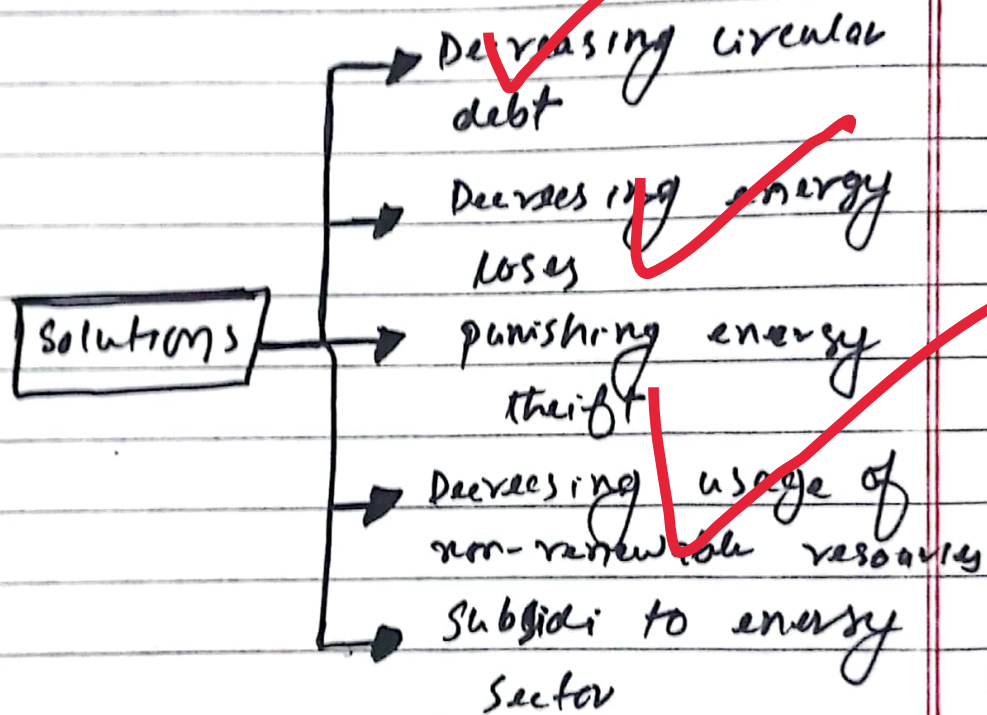 Decreasing circular
debt
Decresing energy
loses
solutions
punishing energy
theift
Decresing usage of
non-renewable resources
Subsidi to energy
Sector